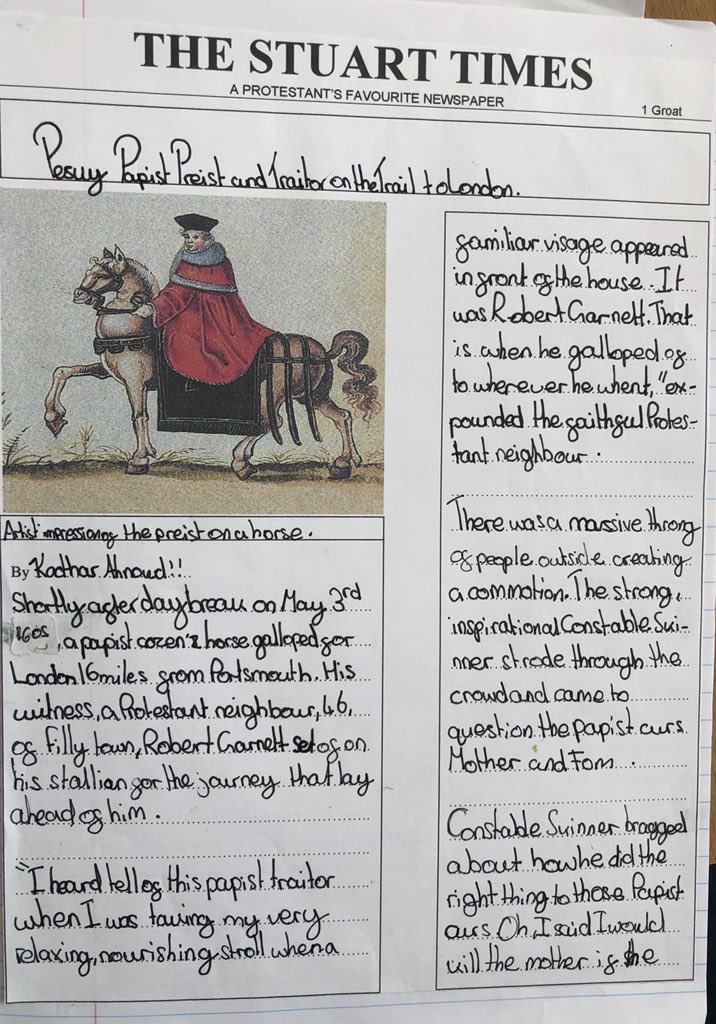 THE STUART TIMES
A PROTESTANT'S FAVOURITE NEWSPAPER
1 Groat
Pesky Papist Preist and Traitor on the Trail to London.
Artist impression of the preist on a horse.
By Kadthar Ahnaud!!
Shortly after daybreak on May 3rd
1605, a papist cozen'z horse galloped for
London 16 miles from Portsmouth. His
witness, a Protestant neighbour, 46,
of Filly town, Robert Garnett set of on
his stallion for the journey that lay
ahead of him.
"I heard tell of this papist traitor
when I was taking my very
relaxing, nourishing stroll when a
familiar visage appeared
in front of the house. It
was Robert Garnett. That
is when he galloped of
to wherever he whent, "ex-
pounded the faithful Protes-
tant neighbour.
There was a massive throng
of people outside creating
a commotion. The strong,
inspirational Constable Ski-
nner strode through the
crowd and came to
question the papist curs
Mother and Fam.
Constable Skinner bragged
about how he did the
right thing to those Papist
curs. Oh, I said I would
kill the mother if